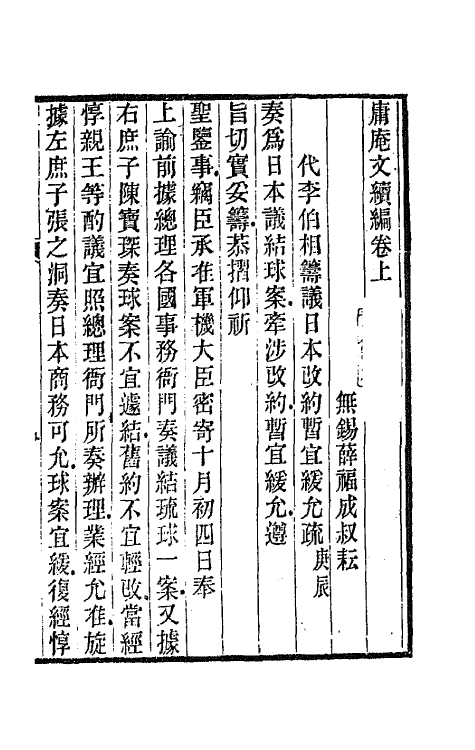 庸庵文續編卷上
無錫薛福成叔耘
代李伯相籌議日本改約暫宜緩允疏 庚辰
奏爲日本議結球案牽涉改約暫宜緩允遵
旨切實妥籌恭摺仰祈
聖鑒事竊臣承准軍機大臣密寄十月初四日奉
上諭前據總理各國事務衙門奏議結琉球一案又據
右庶子陳寶琛奏球案不宜遽結舊約不宜輕改當經
惇親王等酌議宜照總理衙門所奏辦理業經允准旋
據左庶子張之洞奏日本商務可允球案宜緩復經惇